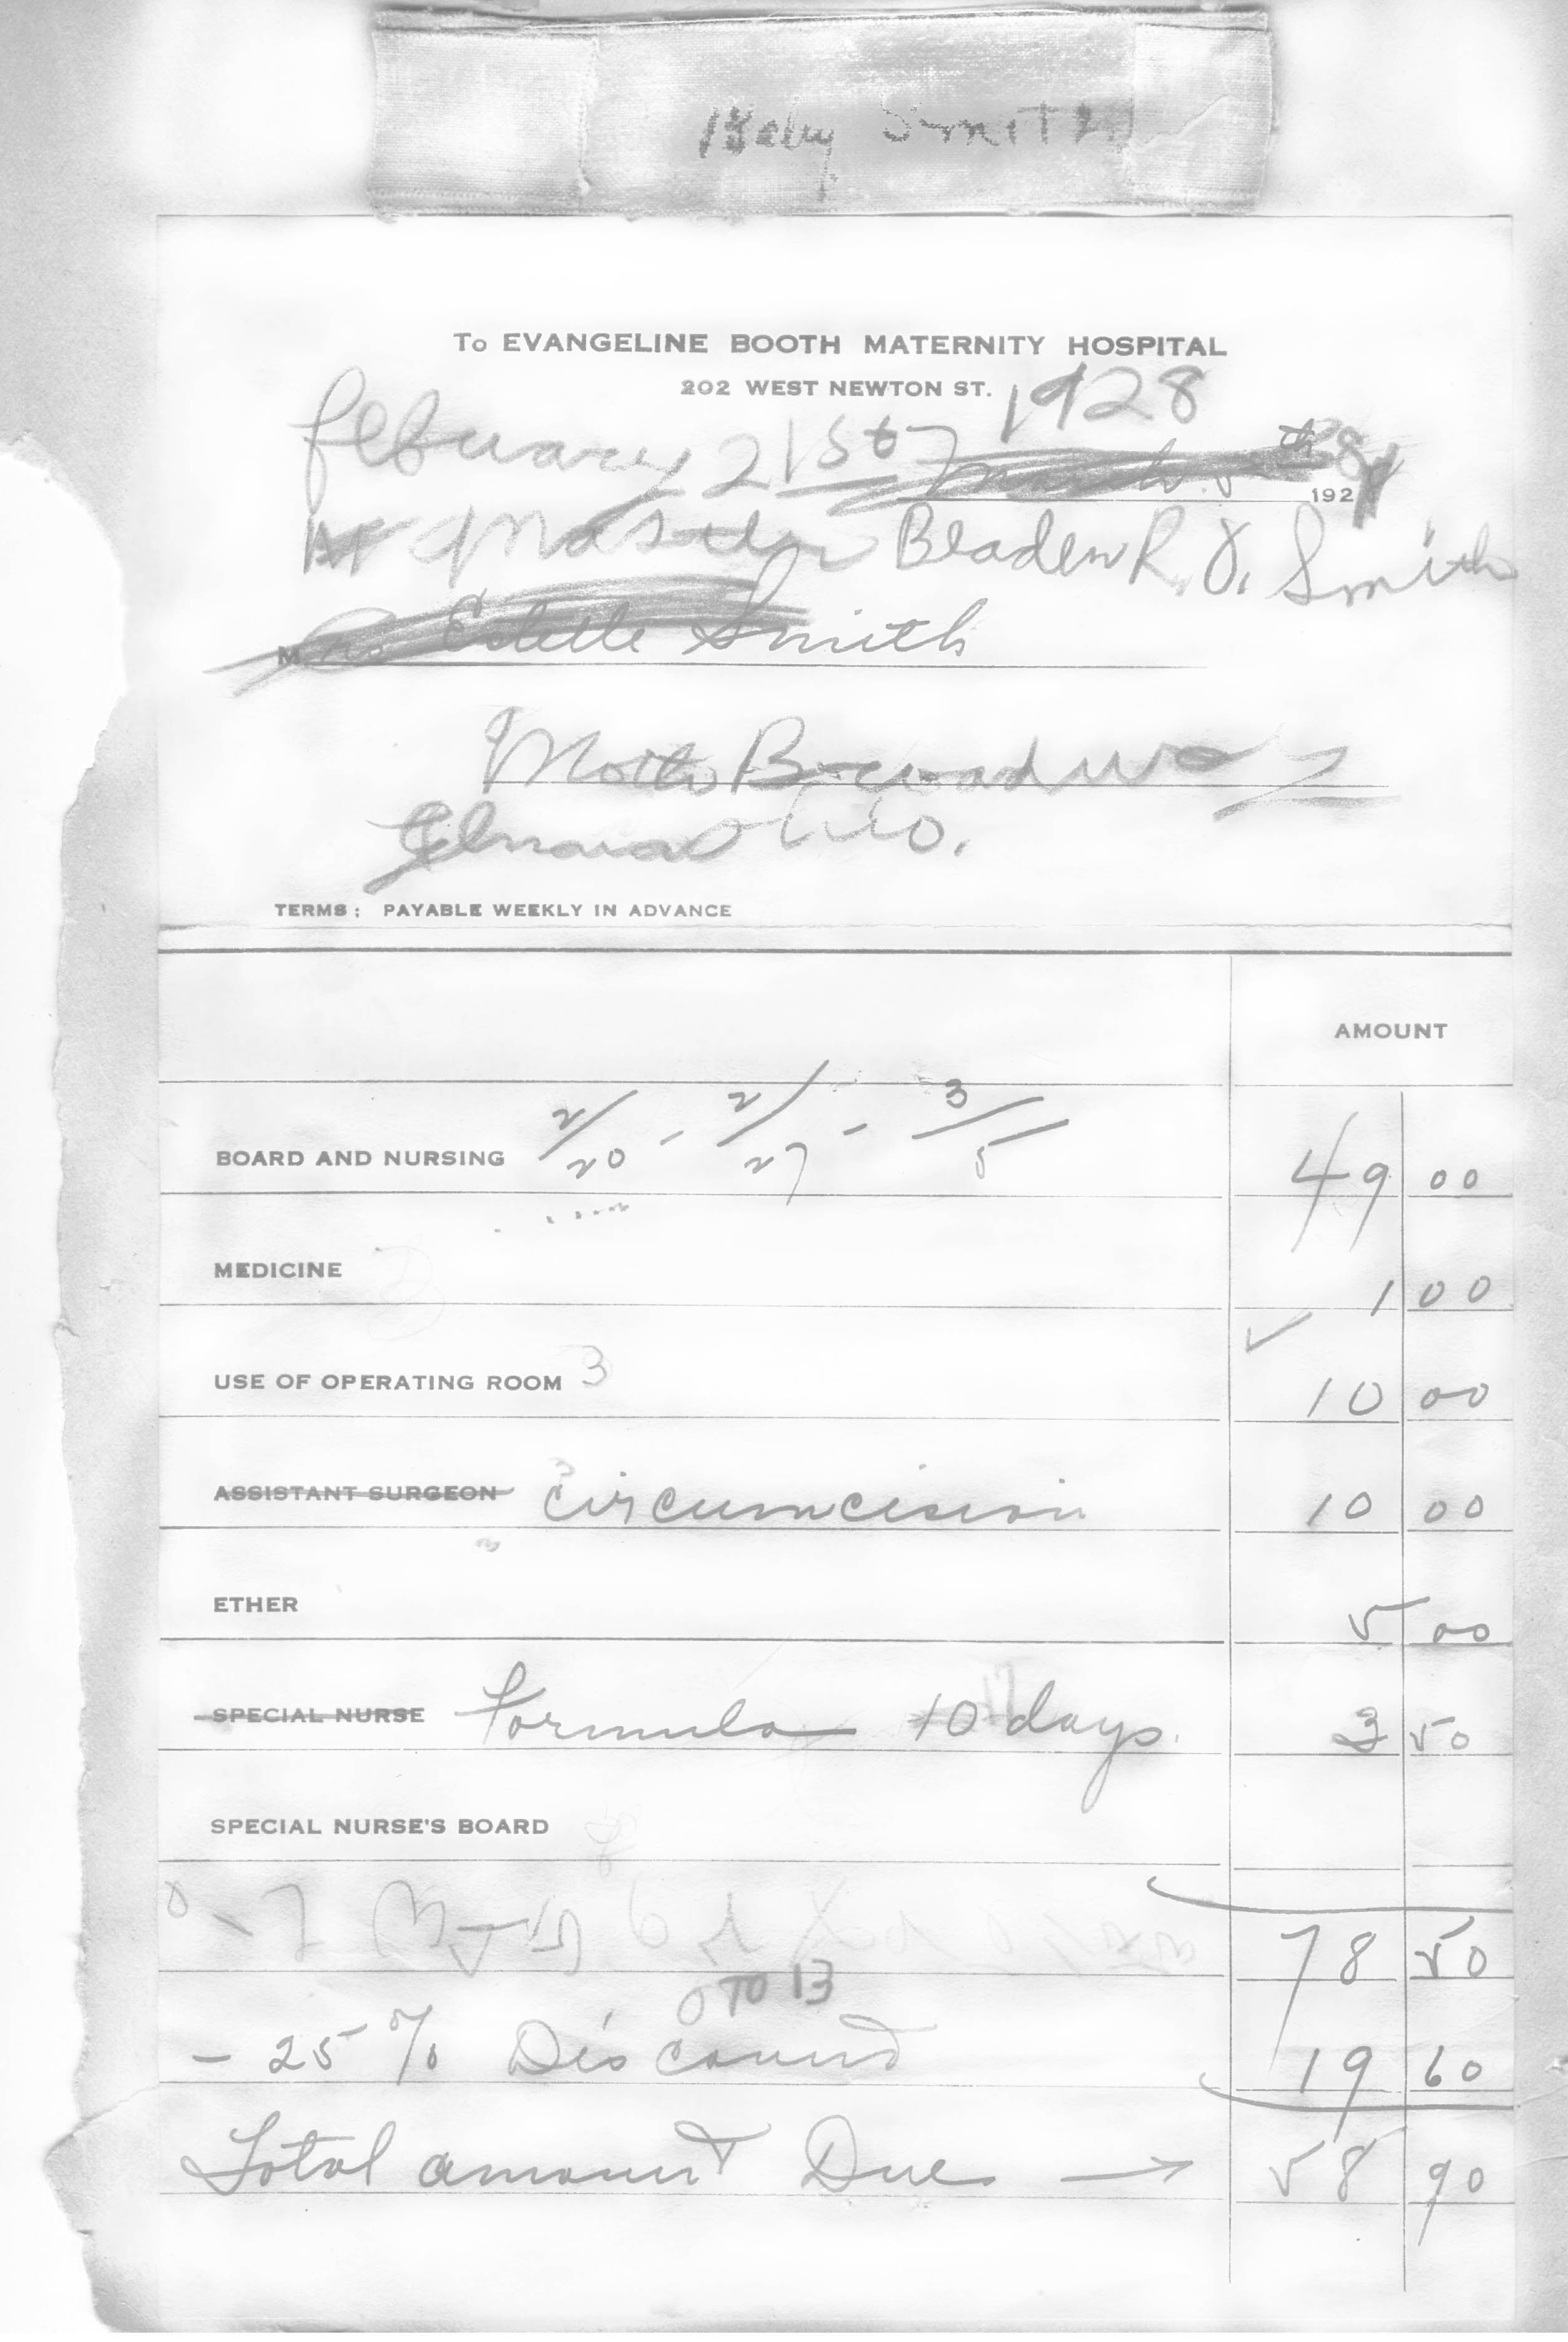 Baby Smith
To EVANGELINE BOOTH MATERNITY HOSPITAL
202 WEST NEWTON ST.
1928
febuary 21st
March 5th 1928
Master Braden R. J. Smith
Mrs Estelle Smith
Ohio.
TERMS: PAYABLE WEEKLY IN ADVANCE
AMOUNT
BOARD AND NURSING 2/20 - 2/27 - 3/5 49 00
MEDICINE 1 00
USE OF OPERATING ROOM 3 10 00
ASSISTANT SURGEON Circumcision 10 00
ETHER 5 00
SPECIAL NURSE Formula 10 days. 3 50
SPECIAL NURSE'S BOARD
78 50
0 TO 13
- 25 % Discount 19 60
Total amount Due → 58 90